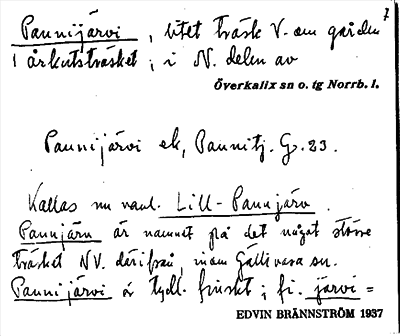 Pannijärvi, litet träsk V. om gården 7
1 Årkutsträsket; i N. delen av
Överkalix sn o. tg Norrb. l.
Pannijärvi ek, Pannitj. G. 23.
Kallas nu vanl. Lill-Pannjärv.
Pannjärv är namnet på det något större
träsket NV. därifrån, inom Gällivara sn.
Pannijärvi är tydl. finskt; fi. järvi =
EDVIN BRÄNNSTRÖM 1937